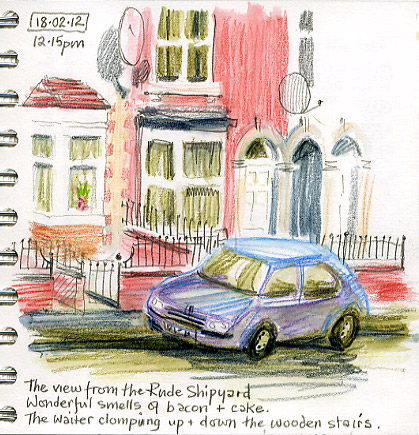 18.02.12
12.15pm
The view from the Rude Shipyard
Wonderful smells of bacon + cake.
The waiter clomping up + down the wooden stairs.